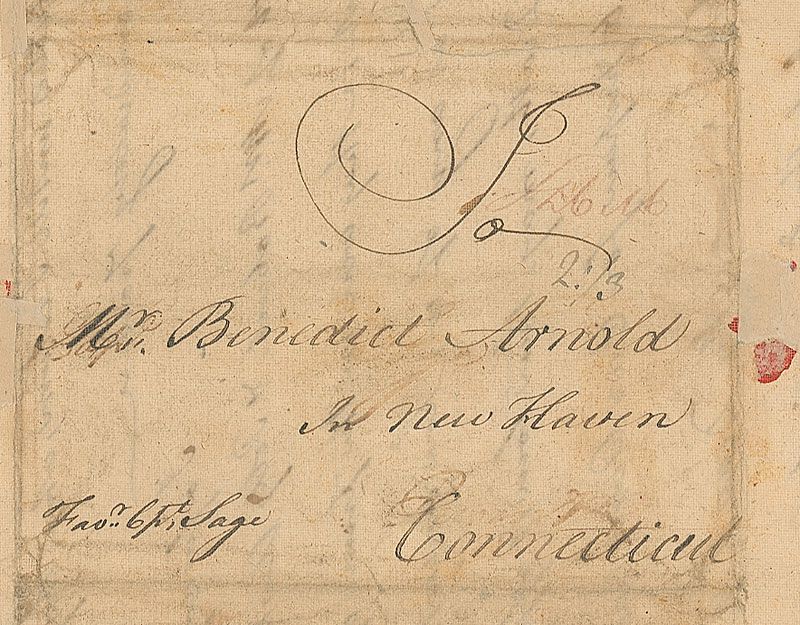 To
2:/3
Mr. Benedict Arnold
In New Haven
Connecticut
Favr. Sage